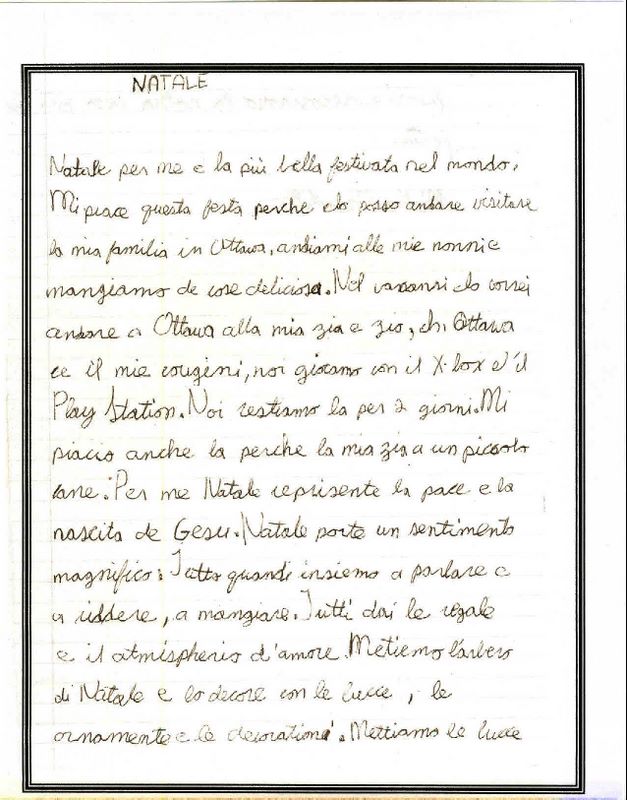 NATALE
Natale per me e la più bella festivata nel mondo.
Mi piace questa festa perche elo posso andare visitare
la mia familia in Ottawa, andiami alle mie nonni e
mangiamo de cose deliciosa. Nel vacanzi elo vorrei
andare a Ottawa alla mia zia e zio, ch. Ottawa
ce il mie cougini, noi giocamo con il X-box e il
Play Station. Noi restiamo la per 2 giorni. Mi
piacio anche la perche la mia zia a un piccolo
cane. Per me Natale represente la pace e la
nascita de Gesu. Natale porte un sentimento
magnifico: Tutto quandi insiemo a parlare e
a riddere, a mangiare. Tutti dai le regale
e il atmispherio d'amore. Metiemo l'arbero
di Natale e lo decore con le lucce, le
ornamente e le decorationi. Mettiamo le lucce